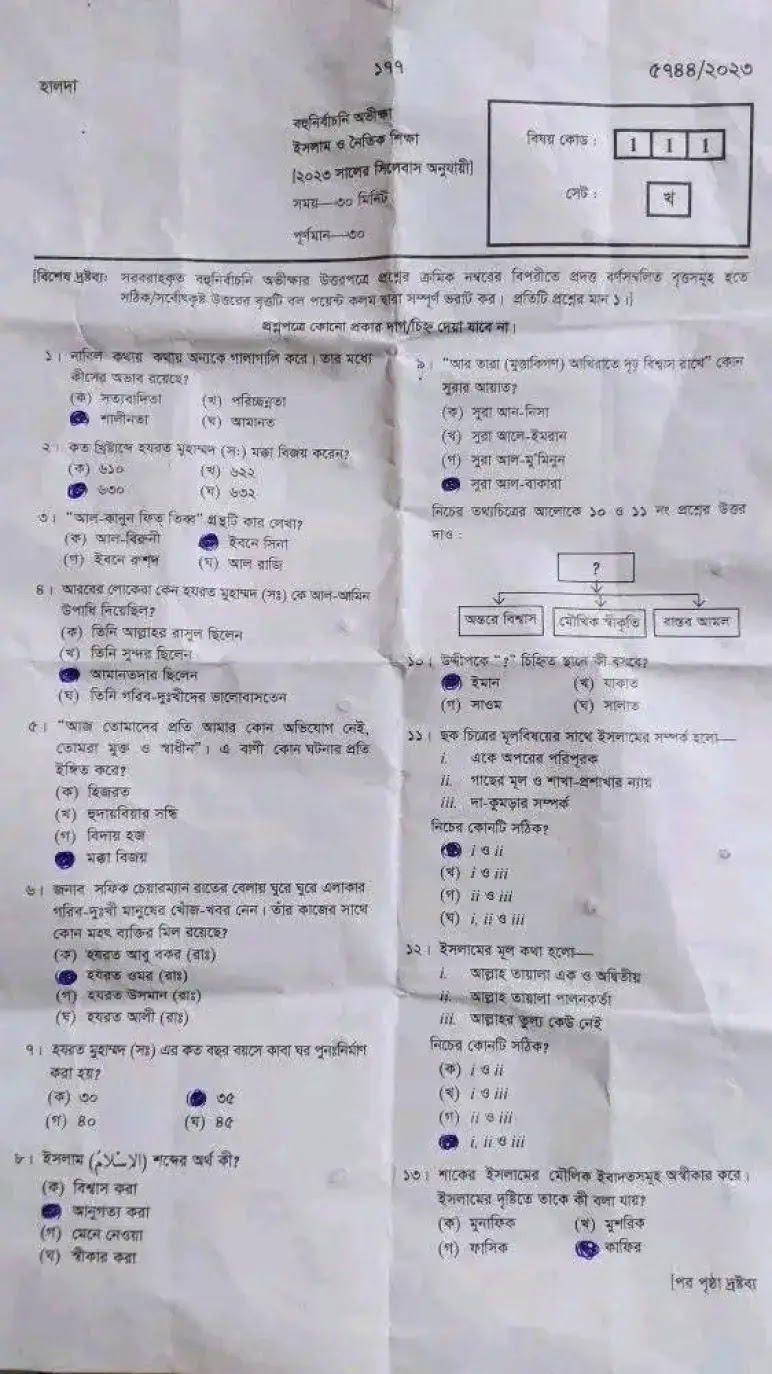 হালদা
১৭৭
৫৭৪৪/২০২৩
বহুনির্বাচনি অভীক্ষা
ইসলাম ও নৈতিক শিক্ষা
[২০২৩ সালের সিলেবাস অনুযায়ী]
সময়—৩০ মিনিট
পূর্ণমান—৩০
বিষয় কোড : 1 1 1
সেট : খ
[বিশেষ দ্রষ্টব্য: সরবরাহকৃত বহুনির্বাচনি অভীক্ষার উত্তরপত্রে প্রশ্নের ক্রমিক নম্বরের বিপরীতে প্রদত্ত বর্ণসম্বলিত বৃত্তসমূহ হতে
সঠিক/সর্বোৎকৃষ্ট উত্তরের বৃত্তটি বল পয়েন্ট কলম দ্বারা সম্পূর্ণ ভরাট কর। প্রতিটি প্রশ্নের মান ১।]
প্রশ্নপত্রে কোনো প্রকার দাগ/চিহ্ন দেয়া যাবে না।
১। নাবিল কথায় কথায় অন্যকে গালাগালি করে। তার মধ্যে
কীসের অভাব রয়েছে?
(ক) সত্যবাদিতা (খ) পরিচ্ছন্নতা
শালীনতা (ঘ) আমানত
২। কত খ্রিষ্টাব্দে হযরত মুহাম্মদ (স:) মক্কা বিজয় করেন?
(ক) ৬১০ (খ) ৬২২
৬৩০ (ঘ) ৬৩২
৩। “আল-কানুন ফিত তিব্ব” গ্রন্থটি কার লেখা?
(ক) আল-বিরুনী ইবনে সিনা
(গ) ইবনে রুশদ (ঘ) আল রাজি
৪। আরবের লোকেরা কেন হযরত মুহাম্মদ (সঃ) কে আল-আমিন
উপাধি দিয়েছিল?
(ক) তিনি আল্লাহর রাসুল ছিলেন
(খ) তিনি সুন্দর ছিলেন
আমানতদার ছিলেন
(ঘ) তিনি গরিব-দুঃখীদের ভালোবাসতেন
৫। “আজ তোমাদের প্রতি আমার কোন অভিযোগ নেই,
তোমরা মুক্ত ও স্বাধীন”। এ বাণী কোন ঘটনার প্রতি
ইঙ্গিত করে?
(ক) হিজরত
(খ) হুদায়বিয়ার সন্ধি
(গ) বিদায় হজ
মক্কা বিজয়
৬। জনাব সফিক চেয়ারম্যান রাতের বেলায় ঘুরে ঘুরে এলাকার
গরিব-দুঃখী মানুষের খোঁজ-খবর নেন। তাঁর কাজের সাথে
কোন মহৎ ব্যক্তির মিল রয়েছে?
(ক) হযরত আবু বকর (রাঃ)
হযরত ওমর (রাঃ)
(গ) হযরত উসমান (রাঃ)
(ঘ) হযরত আলী (রাঃ)
৭। হযরত মুহাম্মদ (সঃ) এর কত বছর বয়সে কাবা ঘর পুনঃনির্মাণ
করা হয়?
(ক) ৩০ ৩৫
(গ) ৪০ (ঘ) ৪৫
৮। ইসলাম (الإسلام) শব্দের অর্থ কী?
(ক) বিশ্বাস করা
আনুগত্য করা
(গ) মেনে নেওয়া
(ঘ) স্বীকার করা
৯। “আর তারা (মুত্তাকিগণ) আখিরাতে দৃঢ় বিশ্বাস রাখে” কোন
সুরার আয়াত?
(ক) সুরা আন-নিসা
(খ) সুরা আলে-ইমরান
(গ) সুরা আল-মু'মিনুন
সুরা আল-বাকারা
নিচের তথ্যচিত্রের আলোকে ১০ ও ১১ নং প্রশ্নের উত্তর
দাও :
?
অন্তরে বিশ্বাস মৌখিক স্বীকৃতি বাস্তব আমল
১০। উদ্দীপকে “?” চিহ্নিত স্থানে কী বসবে?
ইমান (খ) যাকাত
(গ) সাওম (ঘ) সালাত
১১। ছক চিত্রের মূলবিষয়ের সাথে ইসলামের সম্পর্ক হলো—
i. একে অপরের পরিপূরক
ii. গাছের মূল ও শাখা-প্রশাখার ন্যায়
iii. দা-কুমড়ার সম্পর্ক
নিচের কোনটি সঠিক?
i ও ii
(খ) i ও iii
(গ) ii ও iii
(ঘ) i, ii ও iii
১২। ইসলামের মূল কথা হলো—
i. আল্লাহ তায়ালা এক ও অদ্বিতীয়
ii. আল্লাহ তায়ালা পালনকর্তা
iii. আল্লাহর তুল্য কেউ নেই
নিচের কোনটি সঠিক?
(ক) i ও ii
(খ) i ও iii
(গ) ii ও iii
i, ii ও iii
১৩। শাকের ইসলামের মৌলিক ইবাদতসমূহ অস্বীকার করে।
ইসলামের দৃষ্টিতে তাকে কী বলা যায়?
(ক) মুনাফিক (খ) মুশরিক
(গ) ফাসিক কাফির
[পর পৃষ্ঠা দ্রষ্টব্য